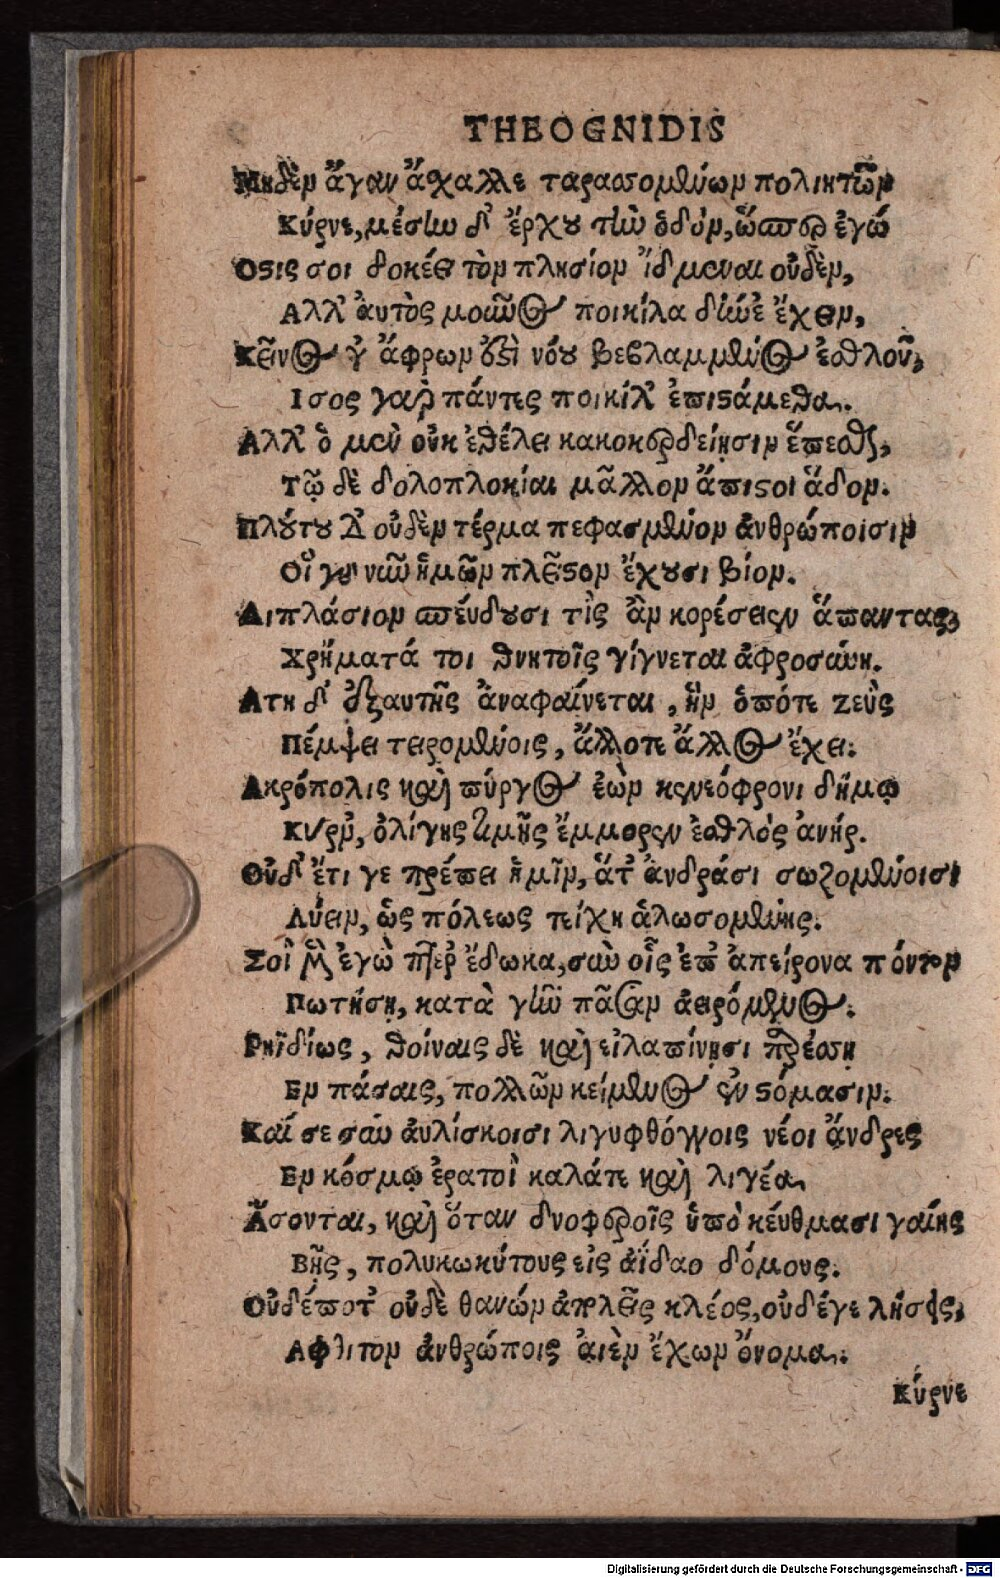 THEOGNIDIS
Μηδὲν ἄγαν ἄσχαλλε ταρασσομένων πολιητῶν
Κύρνε, μέσην δ' ἔρχου τὴν ὁδὸν, ὥσπερ ἐγώ
Οστις σοι δοκέει τὸν πλησίον ἴδμεναι οὐδὲν,
Αλλ' ἀυτὸς μοῦνος ποικίλα δήνε' ἔχειν,
Κεῖνος γ' ἄφρων ἐστὶ νόου βεβλαμμένος ἐσθλοῦ,
Ισος γὰρ πάντες ποικίλ' ἐπιστάμεθα.
Αλλ' ὁ μὲν οὐκ ἐθέλει κακοκερδείῃσιν ἕπεσθαι,
Τῷ δὲ δολοπλοκίαι μᾶλλον ἄπιστοι ἅδον.
Πλούτου δ' οὐδὲν τέρμα πεφασμένον ἀνθρώποισιν
Οἳ γὰρ νῦν ἡμῶν πλεῖστον ἔχουσι βίον.
Διπλάσιον σπέυδουσι τὶς ἂν κορέσειεν ἅπαντας;
Χρήματά τοι θνητοῖς γίγνεται ἀφροσύνη.
Ατη δ' ἐξαυτῆς ἀναφαίνεται, ἣν ὁπότε ζεὺς
Πέμψει τειρομένοις, ἄλλοτε ἄλλος ἔχει.
Ακρόπολις καὶ πύργος ἐὼν κενεόφρονι δήμῳ
Κύρν', ὀλίγης τιμῆς ἔμμορεν ἐσθλὸς ἀνήρ.
Οὐδ' ἔτι γε πρέπει ἡμῖν, ἅτ' ἀνδράσι σωζομένοισι
Λύειν, ὡς πόλεως τείχη ἁλωσομένης.
Σοὶ μὲν ἐγὼ πτερ' ἔδωκα, σὺν οἷς ἐπ' ἀπείρονα πόντον
Πωτήσῃ, κατὰ γῆν πᾶσαν ἀειρόμενος.
Ρηϊδίως, θοίναις δὲ καὶ εἰλαπίνῃσι παρέσσῃ
Εν πάσαις, πολλῶν κείμενος ἐν στόμασιν.
Καί σε σὺν ἀυλίσκοισι λιγυφθόγγοις νέοι ἄνδρες
Εν κόσμῳ ἐρατοὶ καλάτε καὶ λιγέα
Ἄσονται, καὶ ὅταν δνοφεροῖς ὑπὸ κέυθμασι γαίης
Βῇς, πολυκωκύτους εἰς ἀΐδαο δόμους.
Οὐδέποτ' οὐδὲ θανών ἀπολεῖς κλέος, οὐδέγε λήσεις,
Αφθιτον ἀνθρώποις ἀιὲν ἔχων ὄνομα.
Κύρνε
Digitalisierung gefördert durch die Deutsche Forschungsgemeinschaft - DFG